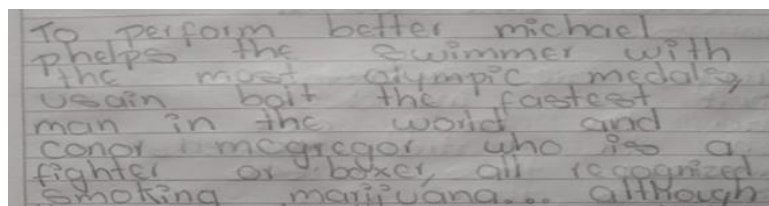 To perform better michael
phelps the swimmer with
the most olympic medals,
usain bolt the fastest
man in the world and
conor mcgregor who is a
fighter or boxer, all recognized
smoking marijuana... although